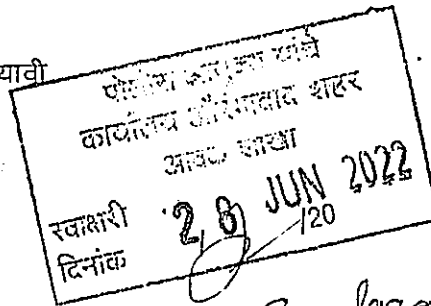 यावी
पोलीस आयुक्त यांचे
कार्यालय औरंगाबाद शहर
आवक शाखा
स्वाक्षरी
दिनांक
JUN 2022
/20